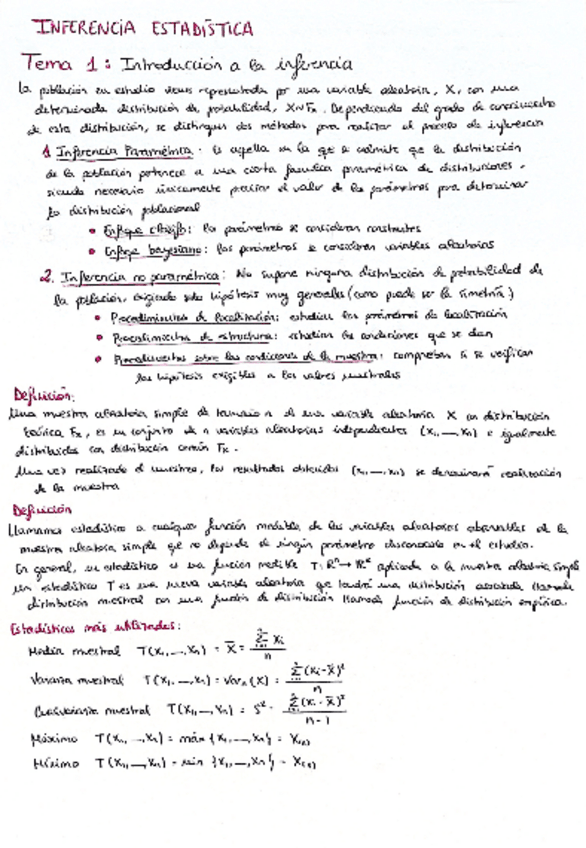 INFERENCIA ESTADÍSTICA
Tema 1: Introducción a la inferencia
La población en estudio viene representada por una variable aleatoria, X, con una
determinada distribución de probabilidad, X~Fx. Dependiendo del grado de conocimiento
de esta distribución, se distinguen dos métodos para realizar el proceso de inferencia
1. Inferencia Paramétrica: Es aquella en la que se admite que la distribución
de la población pertenece a una cierta familia paramétrica de distribuciones,
siendo necesario únicamente precisar el valor de los parámetros para determinar
la distribución poblacional
• Enfoque clásico: los parámetros se consideran constantes
• Enfoque bayesiano: los parámetros se consideran variables aleatorias
2. Inferencia no paramétrica: No supone ninguna distribución de probabilidad de
la población, exigiendo solo hipótesis muy generales (como puede ser la simetría)
• Procedimientos de localización: estudian los parámetros de localización
• Procedimientos de estructura: estudian las condiciones que se dan
• Procedimientos sobre las condiciones de la muestra: comprueban si se verifican
las hipótesis exigibles a los valores muestrales
Definición:
Una muestra aleatoria simple de tamaño n de una variable aleatoria X con distribución
teórica Fx, es un conjunto de n variables aleatorias independientes (X₁,—,Xn) e igualmente
distribuidas con distribución común Fx.
Una vez realizado el muestreo, los resultados obtenidos (x₁,—,xn) se denominará realización
de la muestra
Definición
Llamamos estadístico a cualquier función medible de las variables aleatorias observables de la
muestra aleatoria simple que no depende de ningún parámetro desconocido en el estudio.
En general, un estadístico es una función medible T: Rⁿ→ aplicada a la muestra aleatoria simple
Un estadístico T es una nueva variable aleatoria que tendrá una distribución asociada llamada
distribución muestral con una función de distribución llamada función de distribución empírica.
Estadísticos más utilizados:
Media muestral T(X₁,—,Xn) = X̄ = Σ Xi / n
Varianza muestral T(X₁,—,Xn) = Varn(X) = Σ(Xi - X̄)² / n
Cuasivarianza muestral T(X₁,—,Xn) = S² = Σ(Xi - X̄)² / n-1
Máximo T(X₁,—,Xn) = máx {X₁,—,Xn} = X(n)
Mínimo T(X₁,—,Xn) = min {X₁,—,Xn} = X(1)